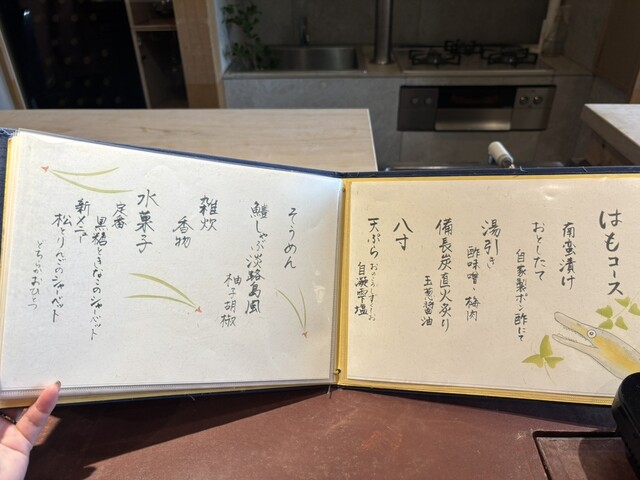 はもコース
南蛮漬け
おとしたて
自家製ポン酢にて
湯引き
酢味噌・梅肉
備長炭直火炙り
玉葱醤油
八寸
天ぷら
自凝雫塩
おのころしずくしお
そうめん
鱧しゃぶ淡路島風
柚子胡椒
雑炊
香物
水菓子
定番
黒糖ときなこのシャーベット
新メニュー
松とりんごのシャーベット
どちらかおひとつ